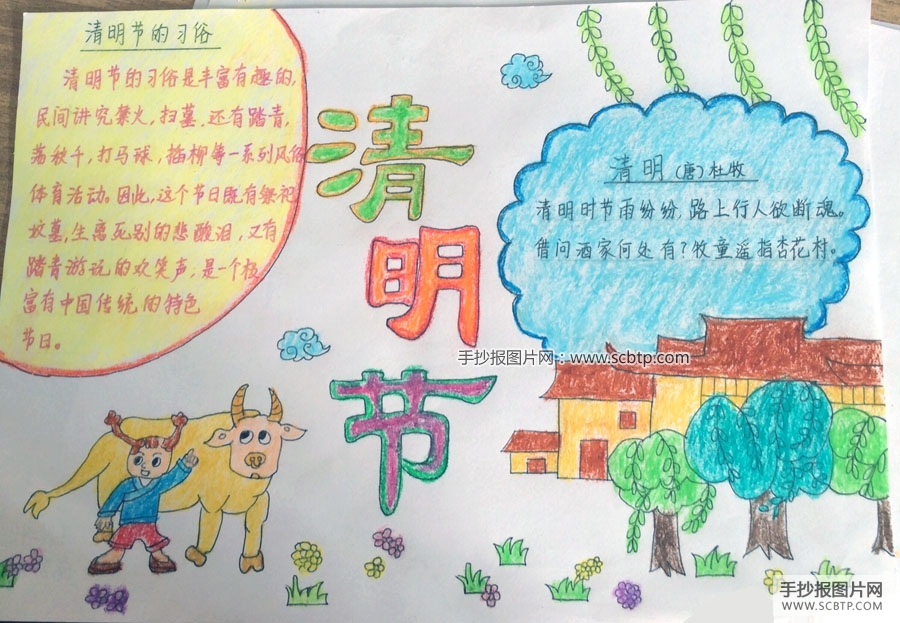 清明节的习俗
清明节的习俗是丰富有趣的,
民间讲究禁火,扫墓.还有踏青,
荡秋千,打马球,插柳等一系列风俗
体育活动。因此,这个节日既有祭祀
坟墓,生离死别的悲酸泪,又有
踏青游玩的欢笑声,是一个极
富有中国传统的特色
节日。
清
明
节
清明(唐)杜牧
清明时节雨纷纷,路上行人欲断魂。
借问酒家何处有?牧童遥指杏花村。
手抄报图片网:www.scbtp.com
手抄报图片网
WWW.SCBTP.COM